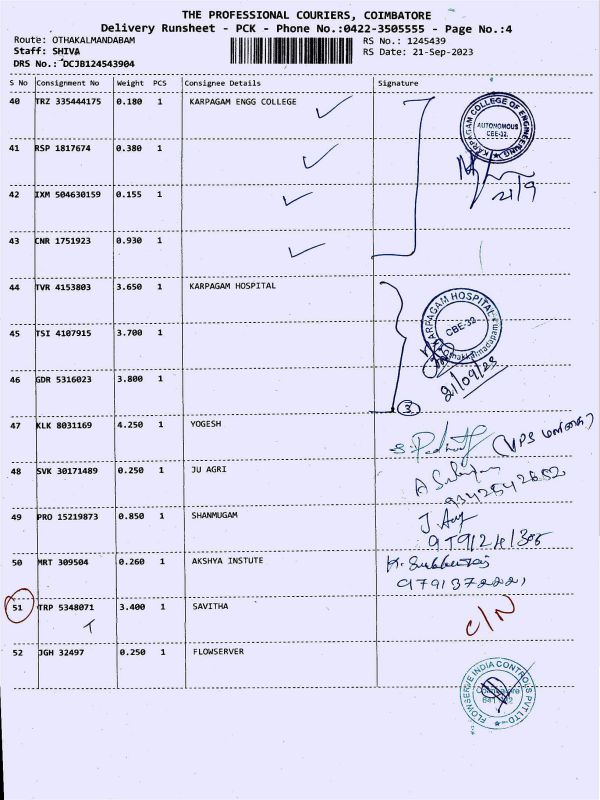 THE PROFESSIONAL COURIERS, COIMBATORE
Delivery Runsheet - PCK - Phone No.:0422-3505555 - Page No.:4
Route: OTHAKALMANDABAM RS No.: 1245439
Staff: SHIVA RS Date: 21-Sep-2023
DRS No.: DCJB124543904
S No Consignment No Weight PCS Consignee Details Signature
40 TRZ 335444175 0.180 1 KARPAGAM ENGG COLLEGE
KARPAGAM COLLEGE OF ENGINEERING
AUTONOMOUS
CBE-32.
41 RSP 1817674 0.380 1
21/9
42 IXM 504630159 0.155 1
43 CNR 1751923 0.930 1
44 TVR 4153803 3.650 1 KARPAGAM HOSPITAL
KARPAGAM HOSPITAL
CBE-32
45 TSI 4107915 3.700 1
46 GDR 5316023 3.800 1
21/09/23
3
47 KLK 8031169 4.250 1 YOGESH
48 SVK 30171489 0.250 1 JU AGRI
49 PRO 15219873 0.850 1 SHANMUGAM
50 MRT 309504 0.260 1 AKSHYA INSTUTE
51 TRP 5348071 3.400 1 SAVITHA C/N
T
52 JGH 32497 0.250 1 FLOWSERVER
FLOWSERVE INDIA CONTROLS PVT LTD
Coimbatore